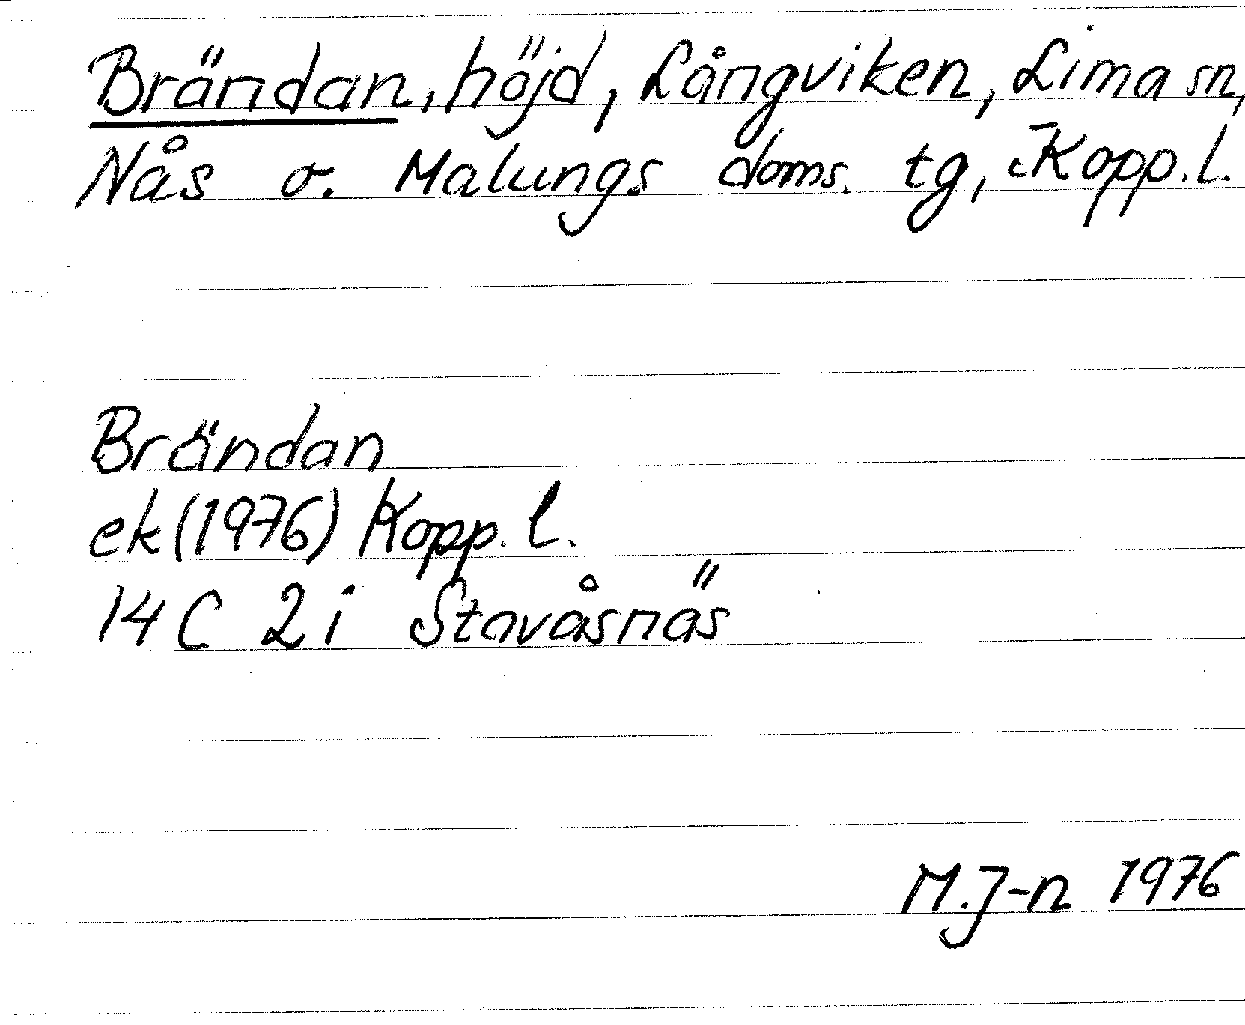 Brändan, höjd, Långviken, Lima sn,
Nås o. Malungs doms. tg, Kopp. l.
Brändan
ek (1976) Kopp. l.
14 C 2 i Stavåsnäs
M. J-n 1976